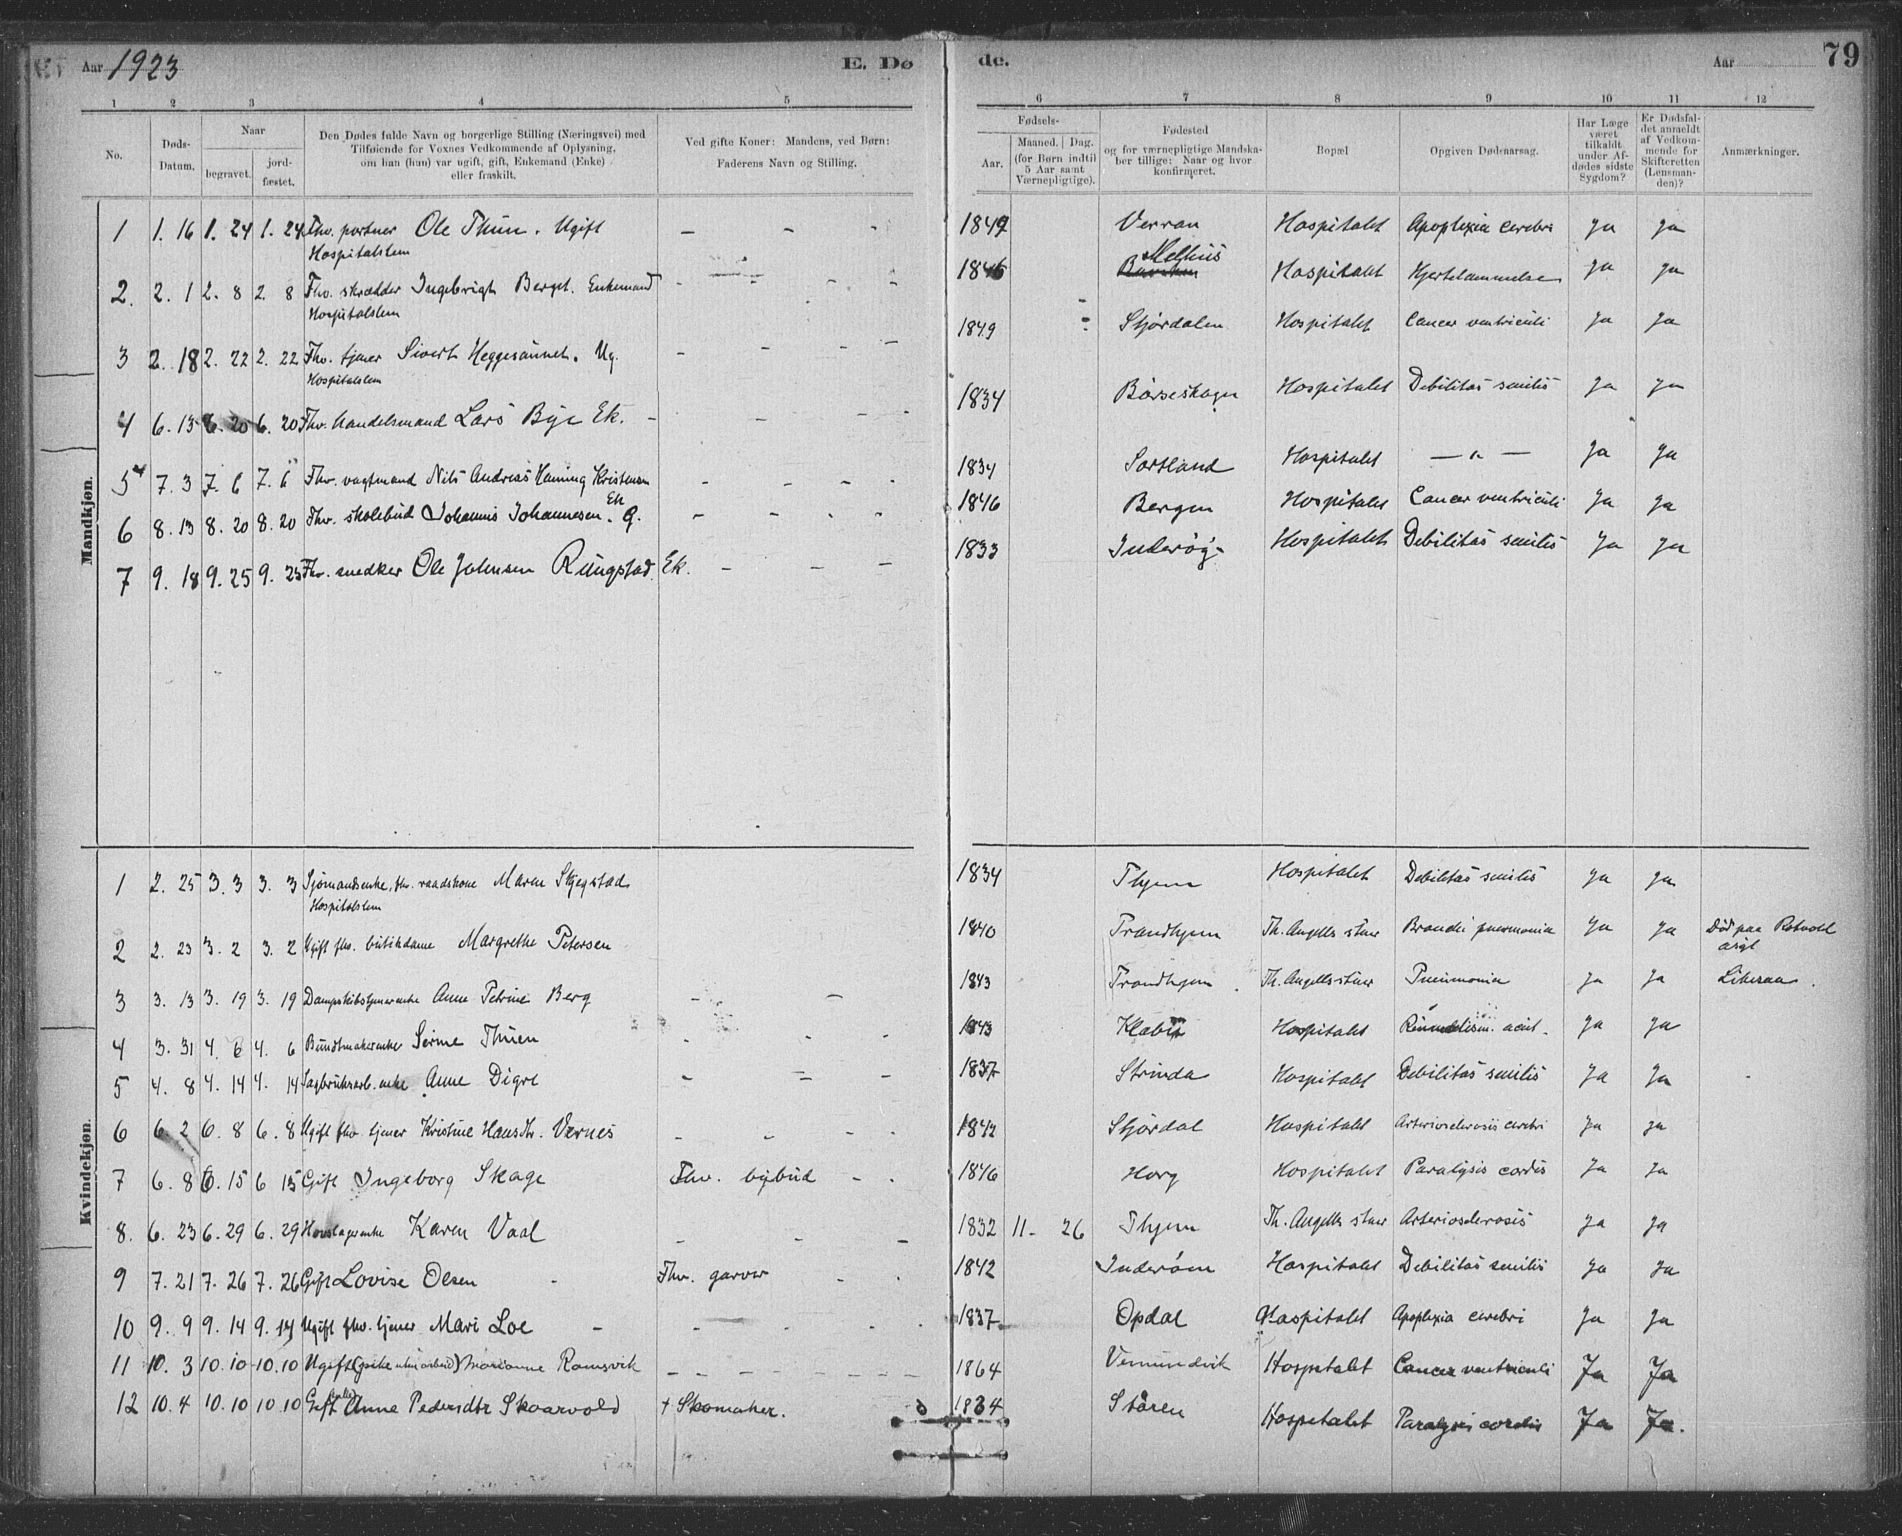 Aar 1923 E. Døde. Aar 79
1 2 3 4 5 6 7 8 9 10 11 12
No.
Døds-Datum.
Naar
begravet.
jord-fæstet.
Den Dødes fulde Navn og borgerlige Stilling (Næringsvei) med
Tilføiende for Voxnes Vedkommende af Oplysning,
om han (hun) var ugift, gift, Enkemand (Enke)
eller fraskilt.
Ved gifte Koner: Mandens, ved Børn:
Faderens Navn og Stilling.
Fødsels-
Aar.
Maaned. Dag.
(for Børn indtil
5 Aar samt
Værnepligtige).
Fødested
og for værnepligtige Mandska-
ber tillige: Naar og hvor
konfirmeret.
Bopæl
Opgiven Dødsaarsag.
Har Læge
været
tilkaldt
under Af-
dødes sidste
Sygdom?
Er Dødsfal-
det anmeldt
af Vedkom-
mende for
Skifteretten
(Lensman-
den)?
Anmærkninger.
Mandkjøn.
1 1. 16 1. 24 1. 24 Fhv. portner Ole Thun. Ugift - - - 1849 Verran Hospitalet Apoplexia cerebri Ja Ja
Hospitalslem
2. 2. 1 2. 8 2. 8 Fhv. skrædder Ingebrigt Berget. Enkemand - - - 1846 Melhus Hospitalet Hjertelammelse Ja Ja
Hospitalslem
3 2. 18 2. 22 2. 22 Fhv. tjener Sivert Heggesaunet. Ug. - - - - 1849 Stjørdalen Hospitalet Cancer ventriculi Ja Ja
Hospitalslem
4 6. 15 6. 20 6. 20 Fhv. handelsmand Lars Bye Ek. - - - - 1834 Børseskogn Hospitalet Debilitas senilis Ja Ja
5 7. 3 7. 6 7. 6 Fhv. vagtmand Nils Andreas Haning Kristensen - - - - 1834 Sortland Hospitalet — " — Ja Ja
Ek
6 8. 13 8. 20 8. 20 Fhv. skolebud Johannes Johannesen. G. - - - - 1846 Bergen Hospitalet Cancer ventriculi Ja Ja
7 9. 18 9. 25 9. 25 Fhv. snedker Ole Johnsen Rungstad. Ek. - - - 1833 Inderøy Hospitalet Debilitas senilis Ja Ja
Kvindekjøn.
1 2. 25 3. 3 3. 3 Sjømandsenke, fhv. vaadskone Maren Skjegstad 1834 Thjem Hospitalet Debilitas senilis Ja Ja
Hospitalslem
2 2. 23 3. 2 3. 2 Ugift fhv. butikdame Margrethe Petersen 1840 Trondhjem Th. Angells stuer Bronchi pneumonia Ja Ja Død paa Rotvold
asyl
3 3. 13 3. 19 3. 19 Dampskibstjenerenke Anne Petrine Berg - - 1843 Trondhjem Th. Angells stuer Pneumonia Ja Ja Likesaa
4 3. 31 4. 6 4. 6 Bundtmakerenke Serine Thuen - - - 1843 Klæbu Hospitalet Rheumatism. acut. Ja Ja
5 4. 8 4. 14 4. 14 Sagbruksarb. enke Anne Digre - - - 1837 Strinda Hospitalet Debilitas senilis Ja Ja
6 6. 2 6. 8 6. 8 Ugift fhv. tjener Kristine Hansdtr. Vernes - - - - 1842 Stjørdal Hospitalet Arteriosclerosis cerebri Ja Ja
7 6. 8 6. 15 6 15 Gift Ingeborg Skage Fhv. bybud - - 1846 Horg Hospitalet Paralysis cordis Ja Ja
8. 6. 23 6. 29 6. 29 Hovslagerenke Karen Vaal - - - 1832 11 - 26 Thjem Th. Angells stuer Arteriosclerosis Ja Ja
9 7. 21 7. 26 7. 26 Gift Lovise Olsen - Fhv. garver - - 1842 Inderøen Hospitalet Debilitas senilis Ja Ja
10 9. 9 9. 14 9. 14 Ugift fhv. tjener Mari Loe - - - - - 1837 Opdal Hospitalet Apoplexia cerebri Ja Ja
11 10. 3 10. 10 10. 10 Ugift (pike uten arbeid) Marianne Ramsvik - - - - - - - 1864 Vemundvik Hospitalet Cancer ventriculi Ja Ja
12 10. 4 10. 10 10 10 Gift Anne Pedersdtr Skoarvold + Skomaker. 1834 Støren Hospitalet Paralysis cordis Ja Ja.